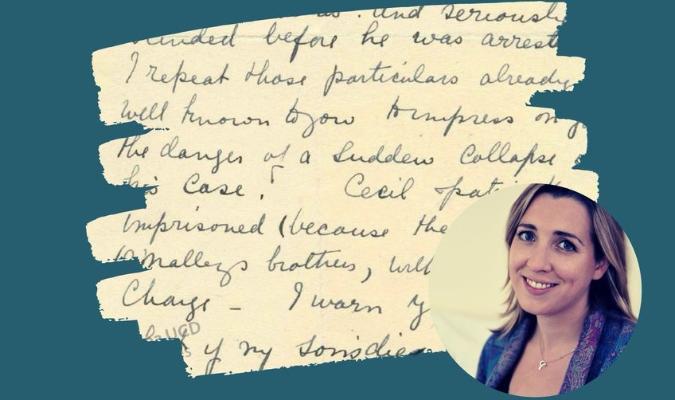 and seriously
wounded before he was arrest
I repeat those particulars already
well known to you to impress on y
the danger of a sudden collapse
his case. Cecil
imprisoned (because the
O'Malleys brothers,
Charge – I warn y
UCD
if my son dies